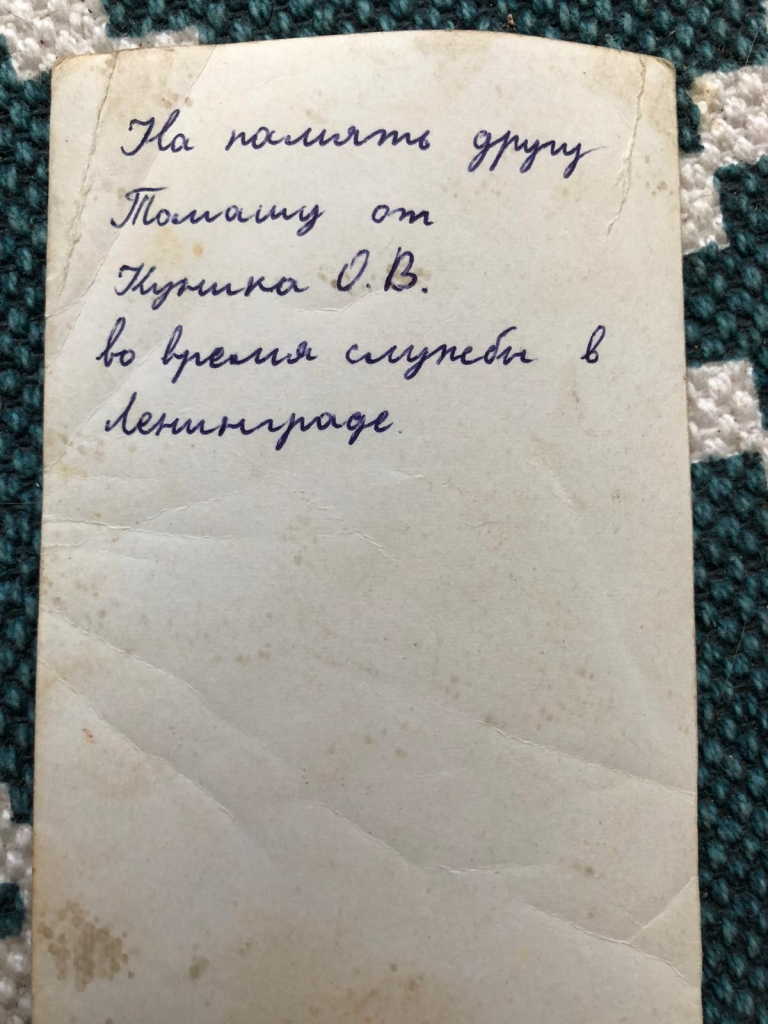 На память другу
Томашу от
Куника О.В.
во время службы в
Ленинграде.